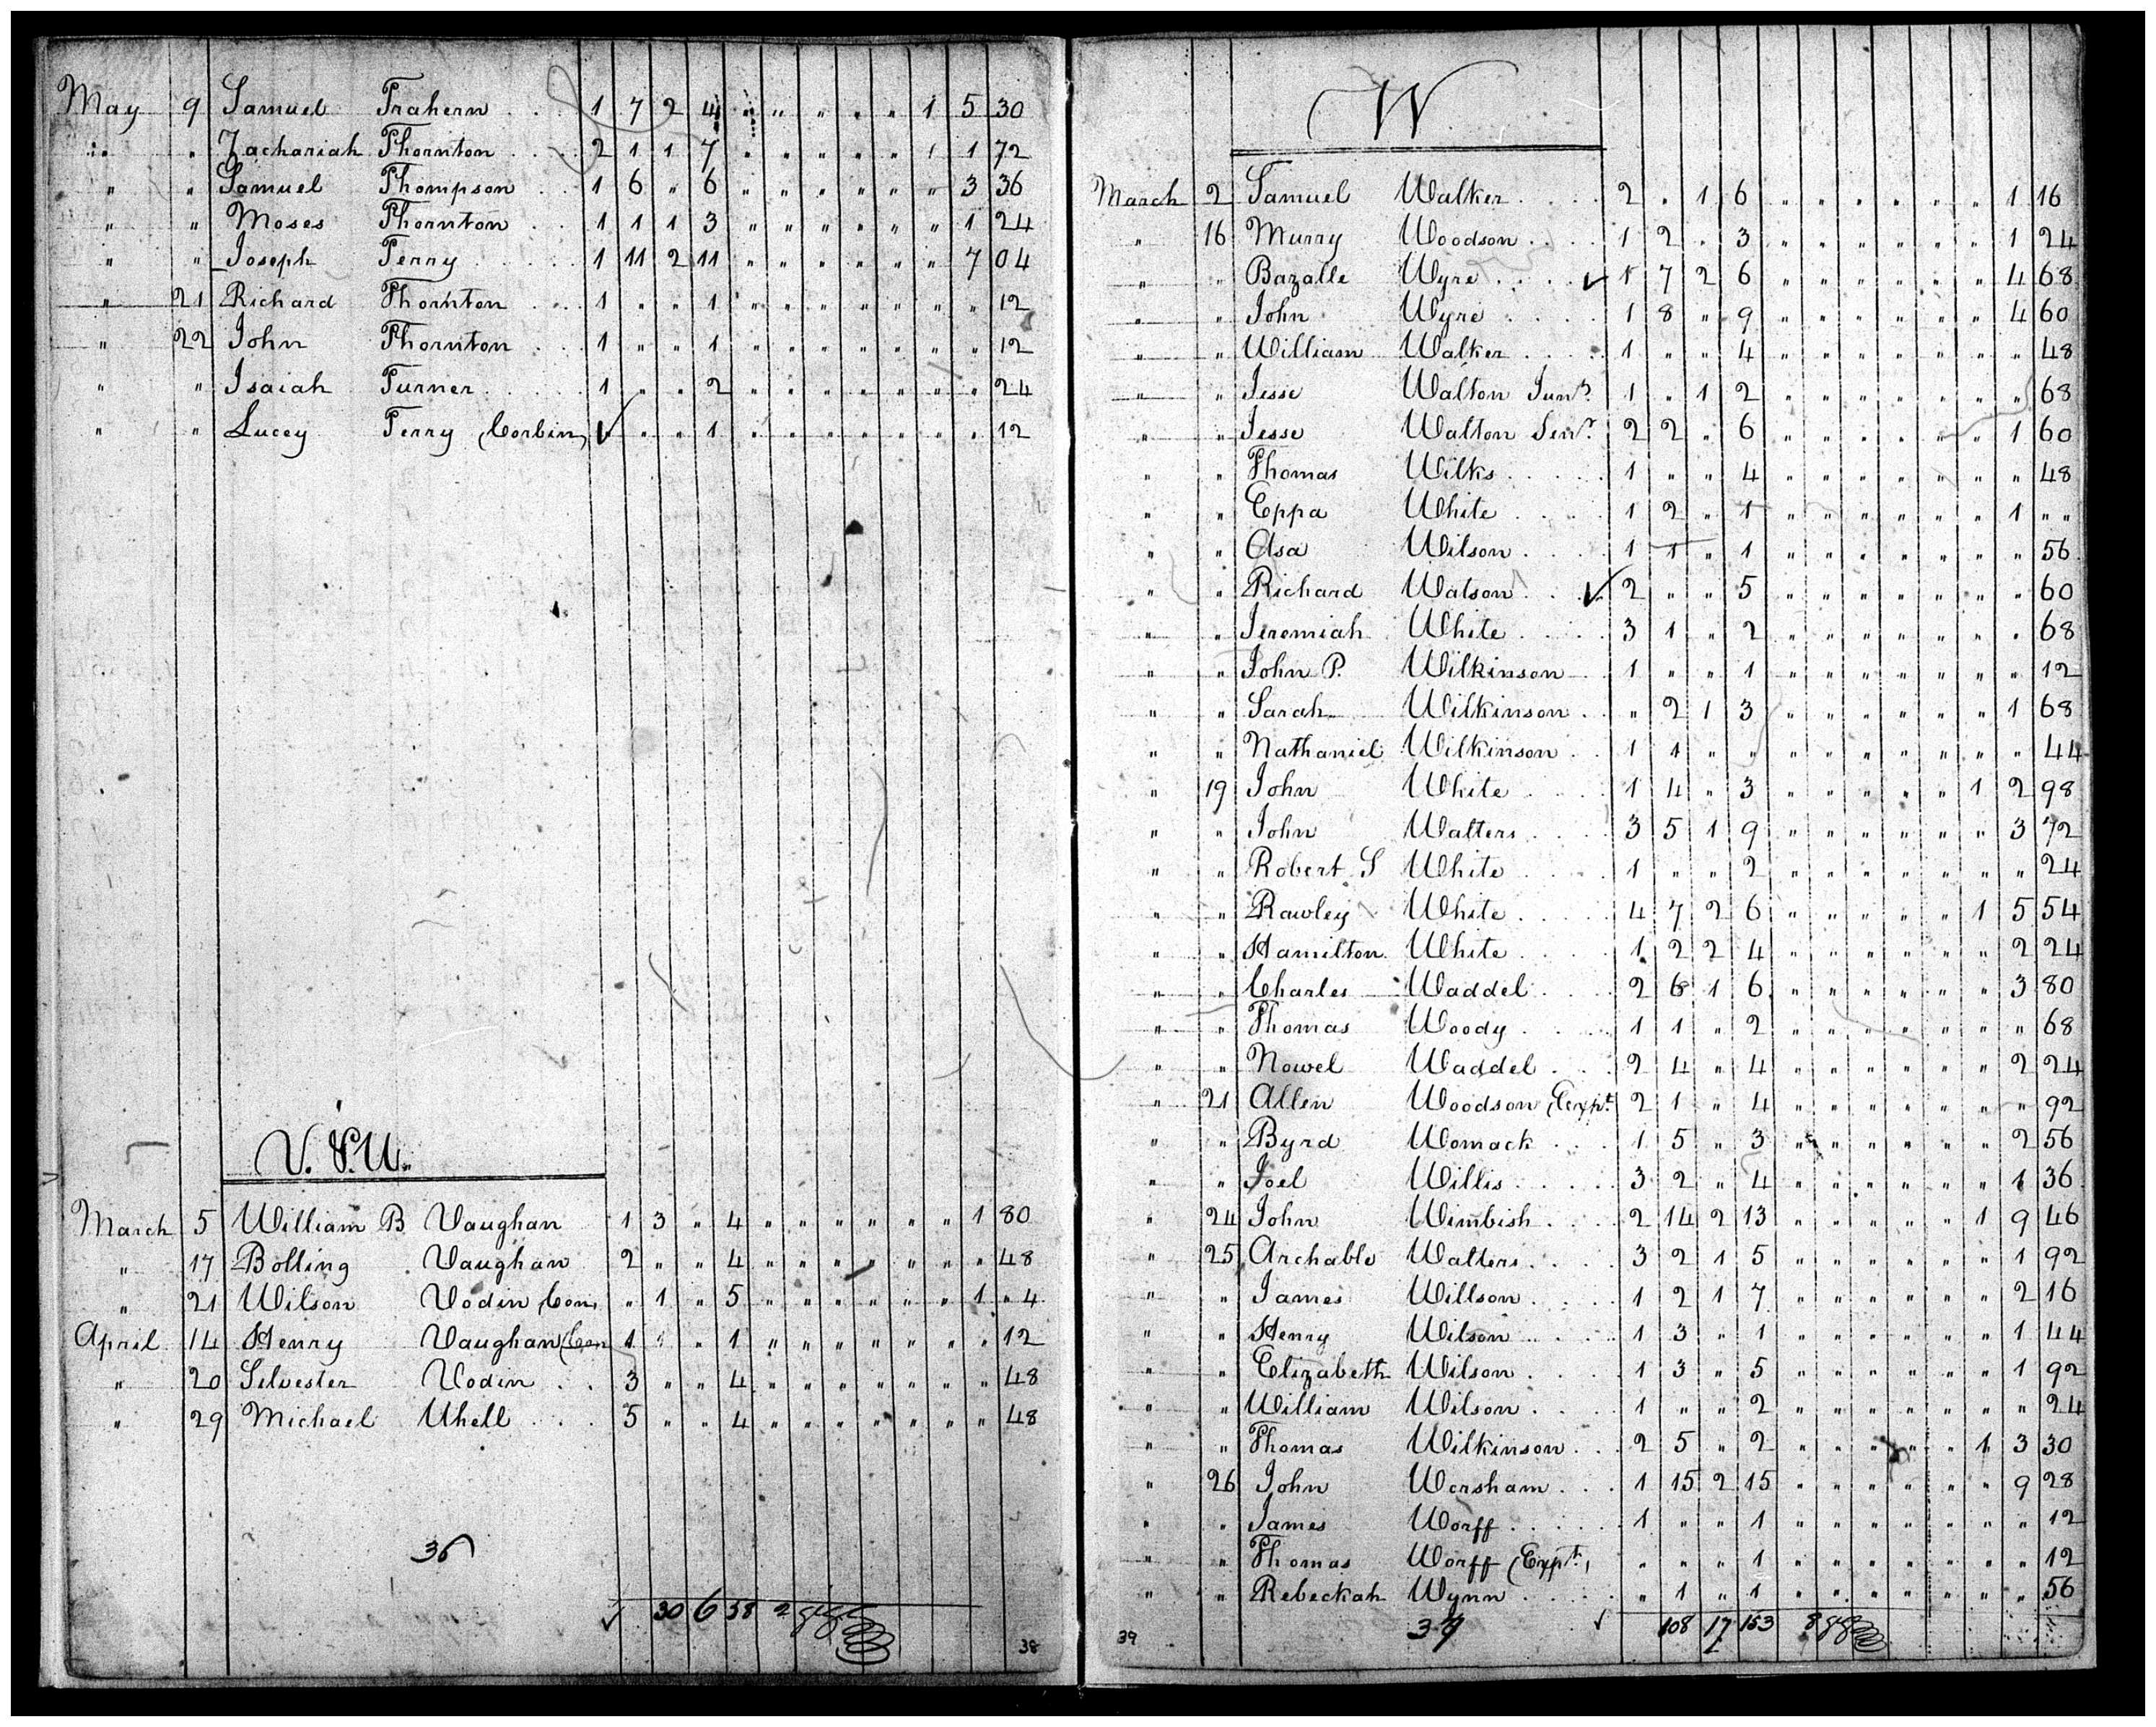 May 9 Samuel Trahern . . 1 7 2 4 " " " " " 1 5 30
" " Zachariah Thornton . . . 2 1 1 7 " " " " " 1 1 72
" " Samuel Thompson . . 1 6 " 6 " " " " " " 3 36
" " Moses Thornton . . 1 1 1 3 " " " " " " 1 24
" " Joseph Terry . . . . 1 11 2 11 " " " " " " 7 04
" 21 Richard Thornton . . 1 " " 1 " " " " " " " 12
" 22 John Thornton . . 1 " " 1 " " " " " " " 12
" " Isaiah Turner . . . . 1 " " 2 " " " " " " " 24
" " Lucey Terry (Corbin) ✓ " " 1 " " " " " " " 12
V. & U.
March 5 William B Vaughan 1 3 " 4 " " " " " " 1 80
" 17 Bolling Vaughan 2 " " 4 " " " " " " " 48
" 21 Wilson Vodin Con, " 1 " 5 " " " " " " 1 " 4
April 14 Henry Vaughan (Con 1 " " 1 " " " " " " " 12
" 20 Silvester Vodin . . 3 " " 4 " " " " " " " 48
" 29 Michael Uhell . . . 5 " " 4 " " " " " " " 48
36
✓ 30 6 58 2
38
W
March 2 Samuel Walker . . . . 2 " 1 6 " " " " " " 1 16
" 16 Murry Woodson . . . . 1 2 " 3 " " " " " " 1 24
" " Bazalle Wyre . . . . ✓ 1 7 2 6 " " " " " " 4 68
" " John Wyre . . . . 1 8 " 9 " " " " " " 4 60
" " William Walker . . . . 1 " " 4 " " " " " " " 48
" " Jesse Walton Junr. 1 " 1 2 " " " " " " " 68
" " Jesse Walton Senr. 2 2 " 6 " " " " " " 1 60
" " Thomas Wilks . . . . . 1 " " 4 " " " " " " " 48
" " Eppa White . . . . 1 2 " 1 " " " " " " 1 " "
" " Asa Wilson . . . . 1 1 " 1 " " " " " " " 56
" " Richard Watson . . ✓ 2 " " 5 " " " " " " " 60
" " Jeremiah White . . . . 3 1 " 2 " " " " " " " 68
" " John P. Wilkinson . . 1 " " 1 " " " " " " " 12
" " Sarah Wilkinson . . " 2 1 3 " " " " " " 1 68
" " Nathaniel Wilkinson . . 1 1 " " " " " " " " " 44
" 19 John White . . . . 1 4 " 3 " " " " " 1 2 98
" " John Walters . . . . 3 5 1 9 " " " " " " 3 72
" " Robert S White . . . . 1 " " 2 " " " " " " " 24
" " Rawley White . . . . 4 7 2 6 " " " " " 1 5 54
" " Hamilton White . . . . 1 2 2 4 " " " " " " 2 24
" " Charles Waddel . . . . 2 6 1 6 " " " " " " 3 80
" " Thomas Woody . . . . 1 1 " 2 " " " " " " " 68
" " Nowel Waddel . . . 2 4 " 4 " " " " " " 2 24
" 21 Allen Woodson (Expt. 2 1 " 4 " " " " " " " 92
" " Byrd Womack . . . 1 5 " 3 " " " " " " 2 56
" " Joel Willis . . . . . 3 2 " 4 " " " " " " 1 36
" 24 John Wimbish . . . . 2 14 2 13 " " " " " 1 9 46
" 25 Archable Walters . . . . 3 2 1 5 " " " " " " 1 92
" " James Willson . . . . 1 2 1 7 " " " " " " 2 16
" " Henry Wilson . . . . 1 3 " 1 " " " " " " 1 44
" " Elizabeth Wilson . . . . 1 3 " 5 " " " " " " 1 92
" " William Wilson . . . . 1 " " 2 " " " " " " " 24
" " Thomas Wilkinson . . . 2 5 " 2 " " " " " 1 3 30
" 26 John Worsham . . . 1 15 2 15 " " " " " " 9 28
" " James Worff . . . . . . 1 " " 1 " " " " " " " 12
" " Thomas Worff (Expt. " " " 1 " " " " " " " 12
" " Rebeckah Wynn . . . . . " 1 " 1 " " " " " " " 56
37 ✓ 108 17 153 8
39